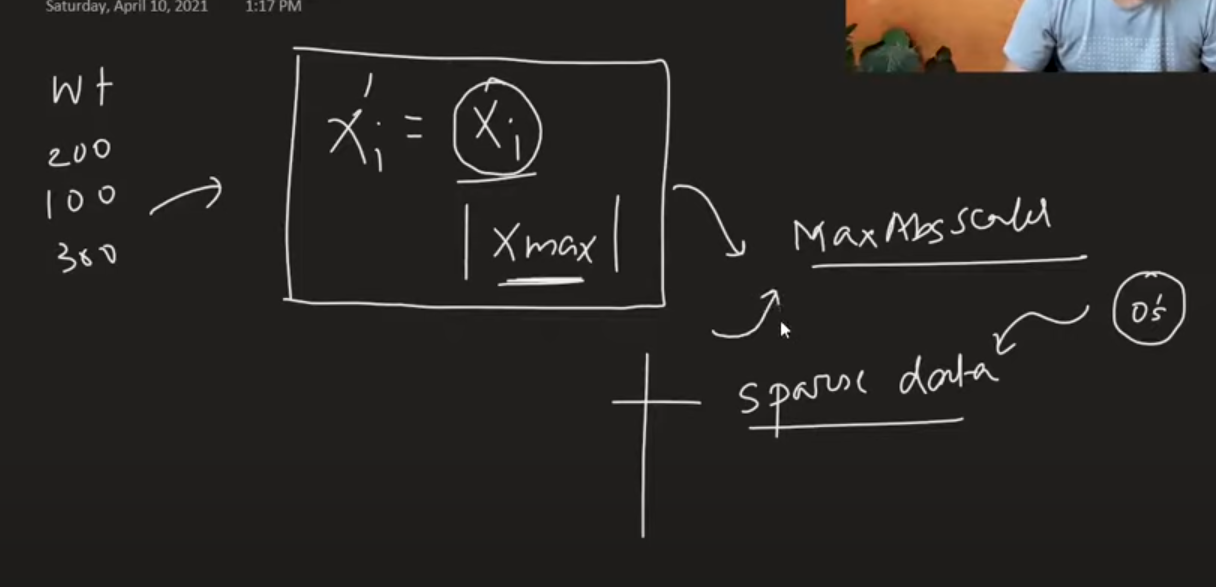 Saturday, April 10, 2021 1:17 PM
Wt
200
100
300
Xi' = Xi
|Xmax|
MaxAbsScaler
0's
sparse data